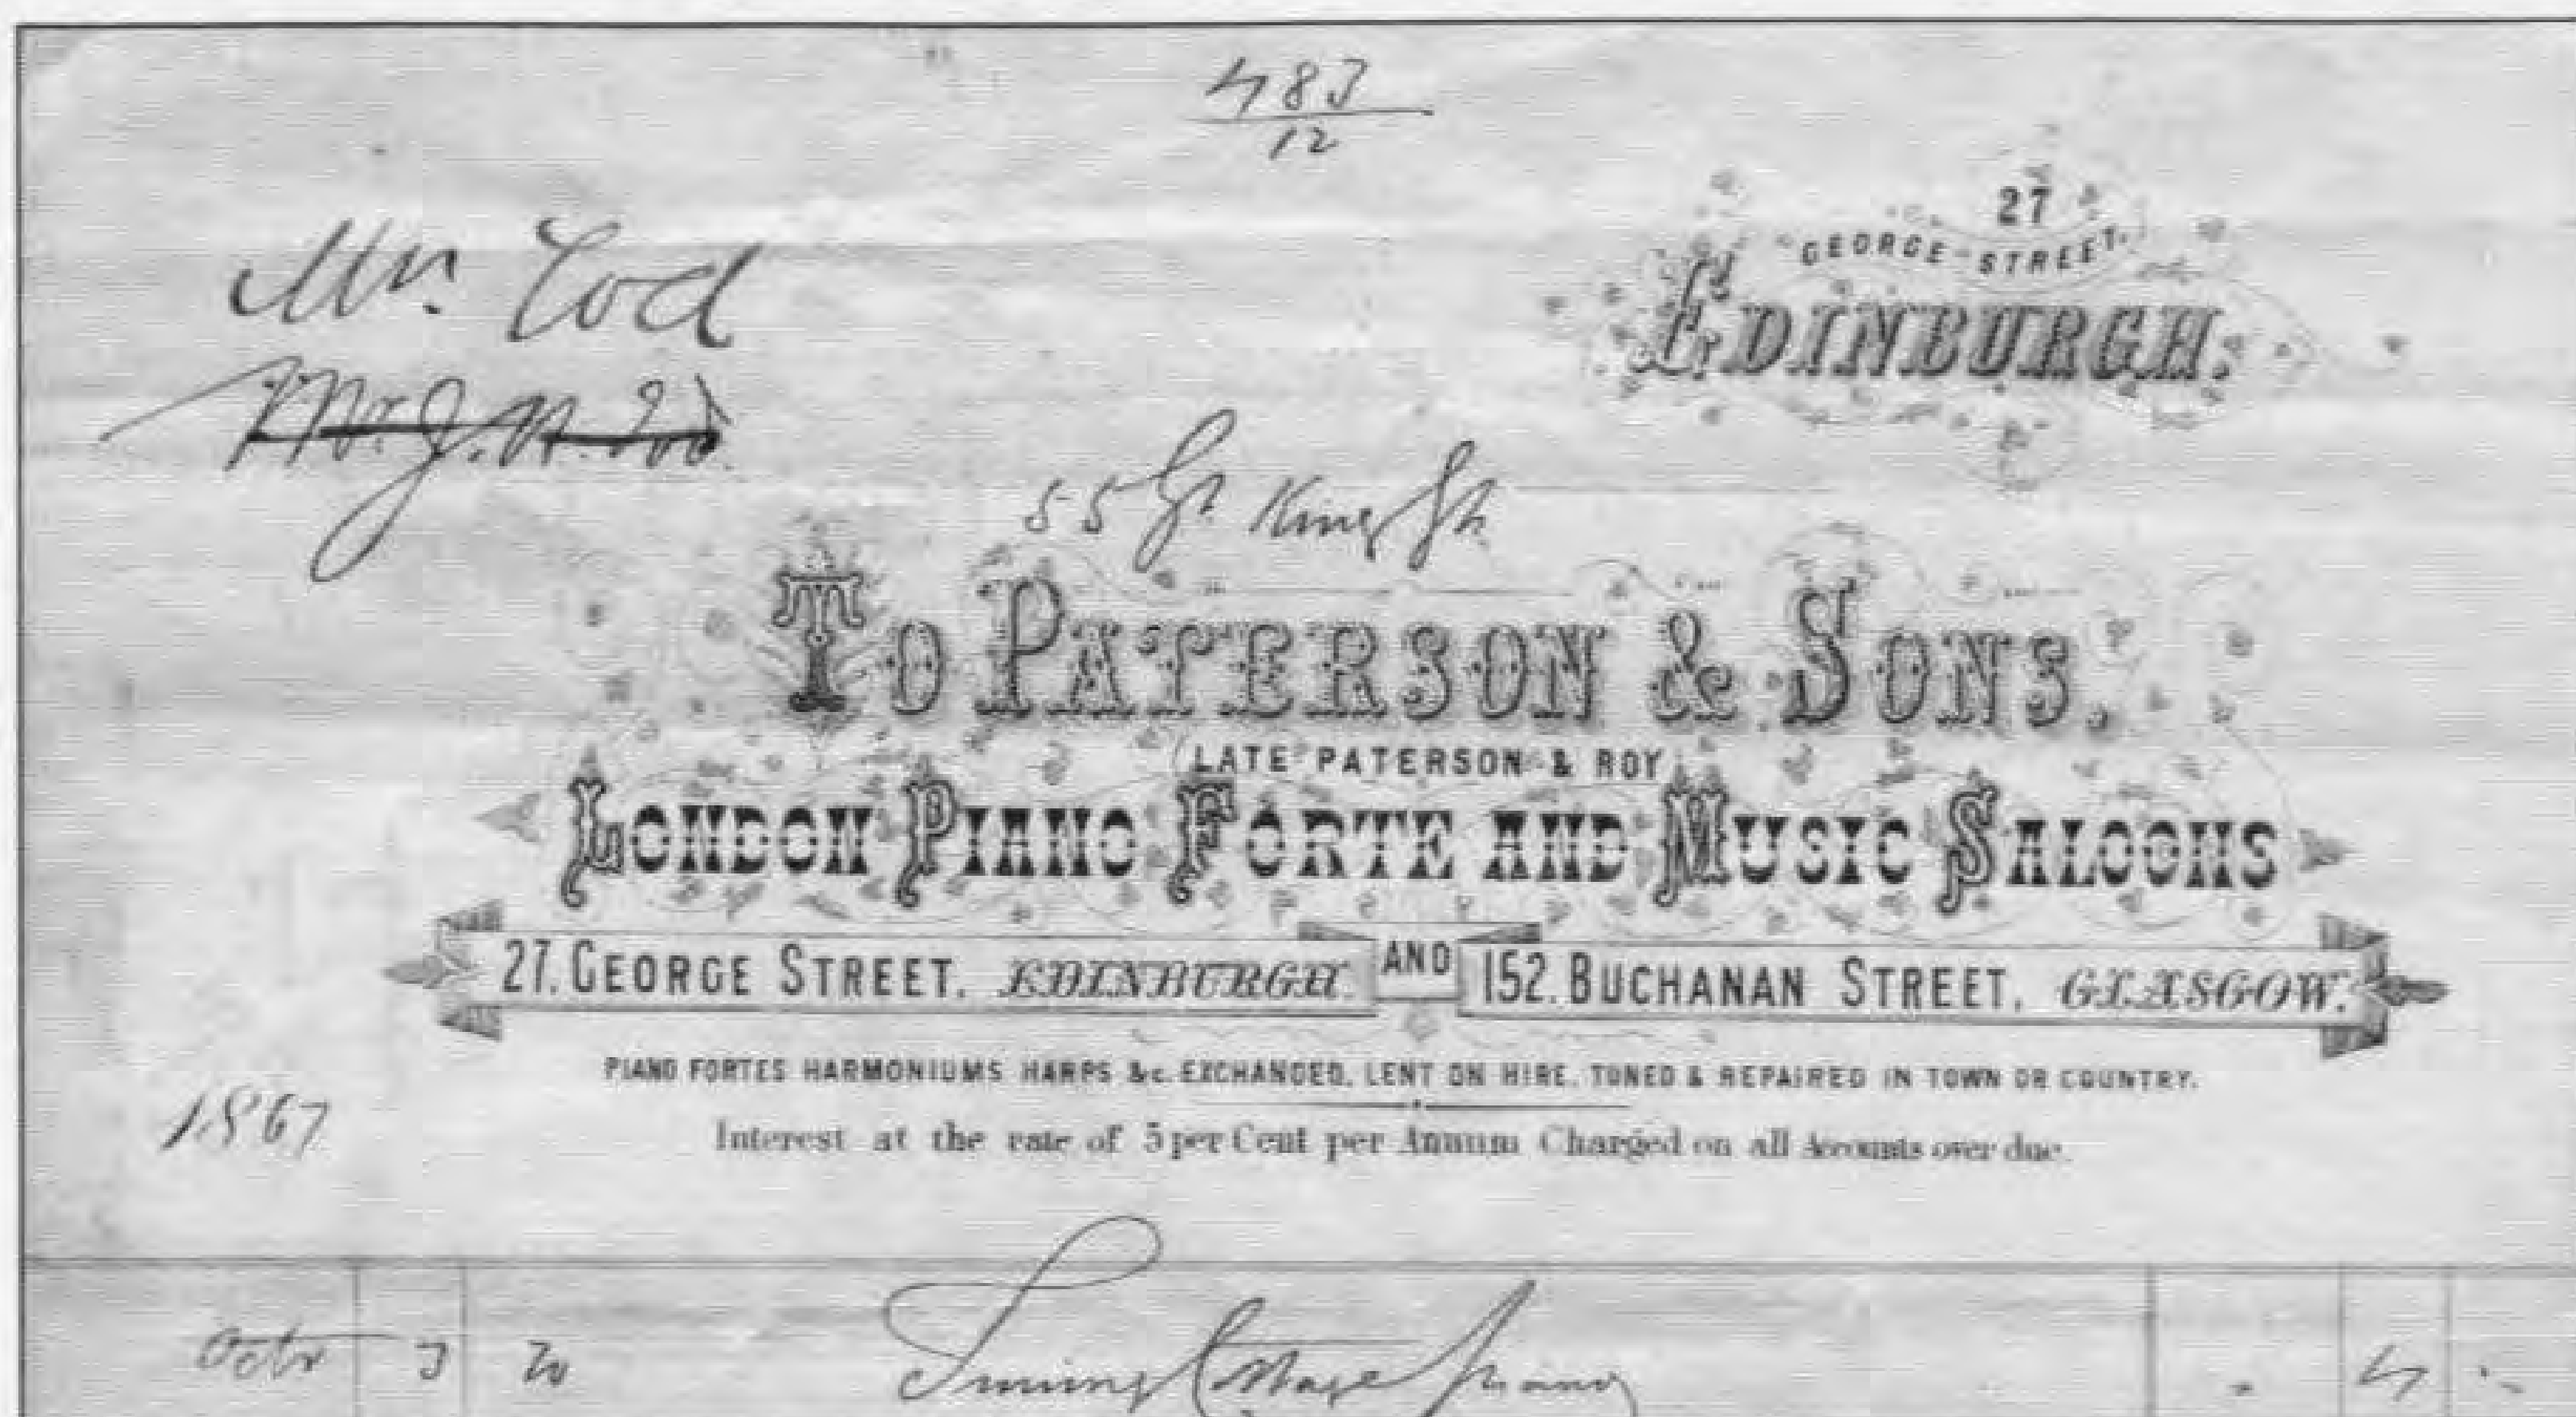 483
12
27
GEORGE STREET.
EDINBURGH.
Mr. Tod
Mr. J. N. Tod.
55 Gt. King St.
TO PATERSON & SONS,
LATE PATERSON & ROY
LONDON PIANO FORTE AND MUSIC SALOONS
27, GEORGE STREET, EDINBURGH. AND 152. BUCHANAN STREET, GLASGOW.
PIANO FORTES HARMONIUMS HARPS &c. EXCHANGED, LENT ON HIRE, TUNED & REPAIRED IN TOWN OR COUNTRY.
1867
Interest at the rate of 5 per Cent per Annum Charged on all Accounts over due.
Octr 3 To Tuning Cottage Piano - 4 -